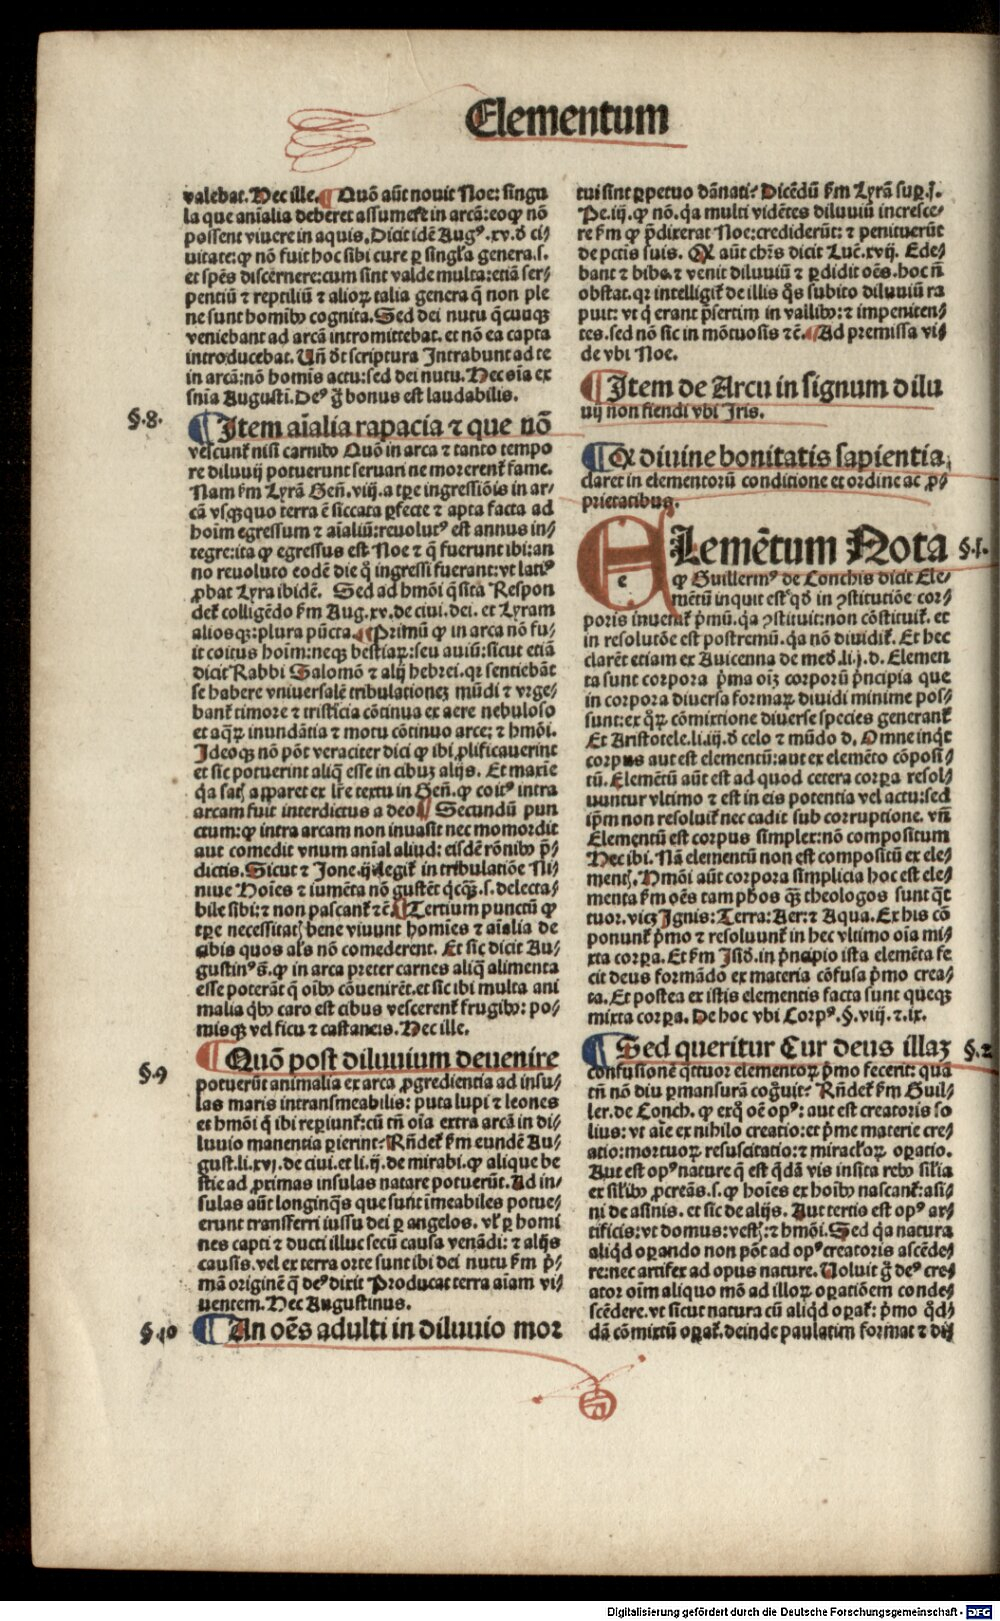 Elementum
valebat. Hec ille. Quō aūt nouit Noe: singu
la que aīalia deberet assumere in arcā: eoq̄ nō
possent viuere in aquis. Dicit idē Augꝰ.xv.đ ci/
uitate: ꝙ nō fuit hoc sibi cure ꝑ singl'a genera.s.
et spēs discernere: cum sint valde multa: etiā ser/
pentiū ⁊ reptiliū ⁊ alioꝝ talia genera q̄ non ple
ne sunt homībꝰ cognita. Sed dei nutu q̄cunqꝫ
veniebant ad arcā intromittebat. et nō ea capta
introducebat. Un̄ đt scriptura Intrabunt ad te
in arcā: nō homīs actu: sed dei nutu. Hec oīa ex
snīa Augustī. Deꝰ g̊ bonus est laudabilis.
§.8.
Item aīalia rapacia ⁊ que nō
vescunt᷑ nisi carnibꝰ Quō in arca ⁊ tanto tempo
re diluuij potuerunt seruari ne morerent᷑ fame.
Nam ẜm Lyrā Geñ.viij. a tꝑe ingressiōis in ar/
cā vsqꝫquo terra ē siccata ꝑfecte ⁊ apta facta ad
hoīm egressum ⁊ aīaliū: reuolutꝰ est annus in/
tegre: ita ꝙ egressus est Noe ⁊ q̄ fuerunt ibi: an
no reuoluto eodē die q̊ ingressi fuerant: vt latiꝰ
ꝓbat Lyra ibidē. Sed ad hmōi q̄sita Respon
det᷑ colligēdo ẜm Aug.xv.de ciui.dei. et Lyram
aliosqꝫ: plura pūcta. Primū ꝙ in arca nō fu/
it coitus hoīm: neqꝫ bestiaꝝ: seu auiū: sicut etiā
dicit Rabbi Salomō ⁊ alij hebrei. qꝛ sentiebāt
se habere vniuersalē tribulationeꝫ mūdi ⁊ vrge/
bant᷑ timore ⁊ tristicia cōtinua ex aere nebuloso
et aq̄ꝝ inundātia ⁊ motu cōtinuo arce: ⁊ hmōi.
Ideoqꝫ nō pōt veraciter dici ꝙ ibi ꝓlificauerint
et sic potuerint aliq̄ esse in cibuꝫ alijs. Et maxīe
q̄a satꝭ apparet ex lr̄e textu in Geñ. ꝙ coitꝰ intra
arcam fuit interdictus a deo. Secundū pun
ctum: ꝙ intra arcam non inuasit nec momordit
aut comedit vnum anīal aliud: eisdē rōnibꝰ p̄/
dictis. Sicut ⁊ Jone.iij. legit᷑ in tribulatiōe Ni/
niue Hoīes ⁊ iumēta nō gustēt q̄cqꝫ.s. delecta/
bile sibi: ⁊ non pascant᷑ ⁊ē. Tertium punctū ꝙ
tꝑe necessitatꝭ bene viuunt homīes ⁊ aīalia de
cibis quos al's nō comederent. Et sic dicit Au/
gustinꝰ s̄. ꝙ in arca preter carnes aliq̄ alimenta
esse poterāt q̄ oībꝰ cōuenirēt. et sic ibi multa ani
malia q̄bꝰ caro est cibus vescerent᷑ frugibꝰ: po/
misqꝫ vel ficu ⁊ castaneis. Hec ille.
§.9
Quō post diluuium deuenire
potuerūt animalia ex arca ꝓgredientia ad insu/
las maris intransmeabilis: puta lupi ⁊ leones
et hmōi q̄ ibi reꝑiunt᷑: cū tn̄ oīa extra arcā in di/
luuio manentia ꝑierint? Rn̄det᷑ ẜm eundē Au/
gust.li.xvj.de ciui.et li.ij.de mirabi. ꝙ alique be
stie ad ꝓximas insulas natare potuerūt. Ad in/
sulas aūt longinq̄s que sunt īmeabiles potue/
erunt transferri iussu dei ꝑ angelos. vl' ꝑ homi
nes capti ⁊ ducti illuc secū causa venādi: ⁊ alijs
causis. vel ex terra orte sunt ibi dei nutu ẜm p̄/
mā originē q̄ deꝰ dixit Producat terra aīam vi/
uentem. Hec Augustinus.
§.10
An oēs adulti in diluuio mor
tui sint ꝑpetuo dānati? Dicēdū ẜm Lyrā suꝑ.j.
Pe.iij. ꝙ nō. q̄a multi vidētes diluuiū incresce/
re ẜm ꝙ p̄dixerat Noe: crediderūt: ⁊ penituerūt
de pctīs suis. Qꝛ aūt chrs dicit Luc̄.xvij. Ede/
bant ⁊ bibēt ⁊ venit diluuiū ⁊ ꝑdidit oēs. hoc n̄
obstat. qꝛ intelligit᷑ de illis q̄s subito diluuiū ra
puit: vt q̄ erant p̄sertim in vallibꝰ: ⁊ impeniten/
tes. sed nō sic in mōtuosis ⁊ē. Ad premissa vi/
de vbi Noe.
Item de Arcu in signum dilu
uij non fiendi vbi Iris.
Qꝛ diuine bonitatis sapientia
claret in elementorū conditione et ordine ac ꝓ/
prietatibus.
§.1.
ELemētum Nota
ꝙ Guillermꝰ de Conchis dicit Ele/
mētū inquit est qd' in ꝯstitutiōe cor/
poris inuenit᷑ p̄mū. q̄a ꝯstituit: non cōstituit᷑. et
in resolutōe est postremū. q̄a nō diuidit᷑. Et hec
clarēt etiam ex Auicenna de med.li.j.d. Elemen
ta sunt corpora p̄ma oiꝫ corporū p̄ncipia que
in corpora diuersa formaꝝ diuidi minime pos/
sunt: ex q̊ꝝ cōmixtione diuerse species generant᷑
Et Aristotele.li.iij.đ celo ⁊ mūdo d. Omne inq̄t
corpus aut est elementū: aut ex elemēto cōposi/
tū. Elemētū aūt est ad quod cetera corꝑa resol/
uuntur vltimo ⁊ est in eis potentia vel actu: sed
ip̄m non resoluit᷑ nec cadit sub corruptione. vn̄
Elementū est corpus simplex: nō compositum
Hec ibi. Nā elementū non est compositū ex ele/
mentꝭ. Hmōi aūt corpora simplicia hoc est ele/
menta ẜm oēs tam phos qꝫ theologos sunt q̄t
tuor. vicꝫ Ignis: Terra: Aer: ⁊ Aqua. Ex his cō
ponunt᷑ p̄mo ⁊ resoluunt᷑ in hec vltimo oīa mi/
xta corꝑa. Et ẜm Isid. in p̄ncipio ista elemēta fe
cit deus formādo ex materia cōfusa p̄mo crea/
ta. Et postea ex istis elementis facta sunt queqꝫ
mixta corꝑa. De hoc vbi Corpꝰ.§.viij.⁊.ix.
§.2
Sed queritur Cur deus illaꝫ
confusionē q̄ttuor elementoꝝ p̄mo fecerit: quā
tn̄ nō diu ꝑmansurā cog̊uit? Rn̄det᷑ ẜm Guil/
ler.de Conch. ꝙ exq̊ oē opꝰ: aut est creatoris so
lius: vt aīe ex nihilo creatio: et p̄me materie cre/
atio: mortuoꝝ resuscitatio: ⁊ miraclōꝝ oꝑatio.
Aut est opꝰ nature q̄ est q̄dā vis insita rebꝰ sil'ia
ex sil'ibꝰ ꝓcreās.s. ꝙ hoīes ex hoībꝰ nascant᷑: asi/
ni de asinis. et sic de alijs. Aut tertio est opꝰ ar/
tificis: vt domus: vestꝭ: ⁊ hmōi. Sed q̄a natura
aliqd oꝑando non pōt ad opꝰ creatoris ascēde/
re: nec artifex ad opus nature. Uoluit g̊ deꝰ cre/
ator oīm aliquo mō ad illoꝝ oꝑatiōem conde/
scēdere. vt sicut natura cū aliqd oꝑat᷑: p̄mo q̊d/
dā cōmixtū oꝑat᷑. deinde paulatim format ⁊ dis
Digitalisierung gefördert durch die Deutsche Forschungsgemeinschaft - DFG